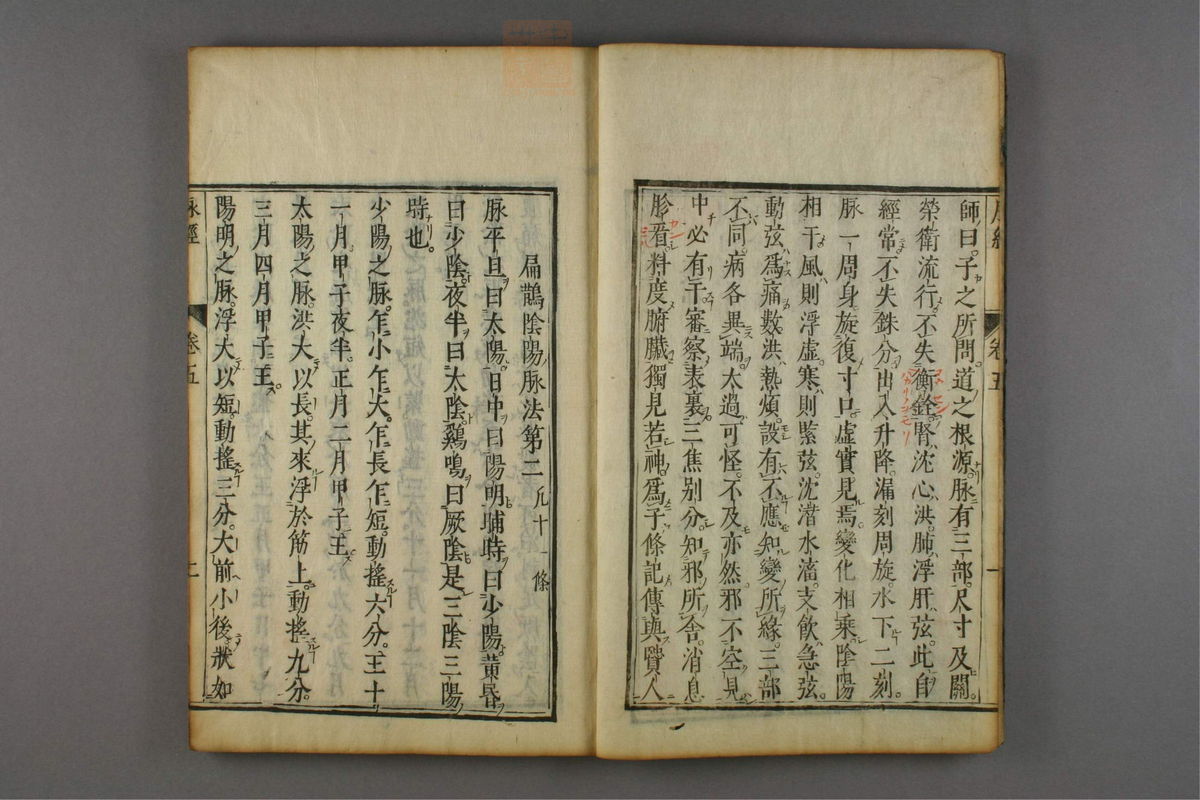 脉經
卷五
一
師曰子之所問道之根源脉有三部尺寸及關
榮衛流行不失衡銓腎沈心洪肺浮肝弦此自
經常不失銖分出入升降漏刻周旋水下二刻
脉一周身旋復寸口虛實見焉變化相乘陰陽
相干風則浮虛寒則緊弦沈潛水滀支飲急弦
動弦爲痛數洪熱煩設有不應知變所緣三部
不同病各異端太過可怪不及亦然邪不空見
中必有干審察表裏三焦别分知邪所舍消息
胗看料度腑臟獨見若神爲子條記傳與賢人
扁鵲陰陽脉法第二 凡十一條
脉平旦曰太陽日中曰陽明晡時曰少陽黄昏
曰少陰夜半曰太陰鷄鳴曰厥陰是三陰三陽
時也
少陽之脉乍小乍大乍長乍短動搖六分王十
一月甲子夜半正月二月甲子王
太陽之脉洪大以長其來浮於筋上動搖九分
三月四月甲子王
陽明之脉浮大以短動搖三分大前小後狀如
脉經
卷五
二